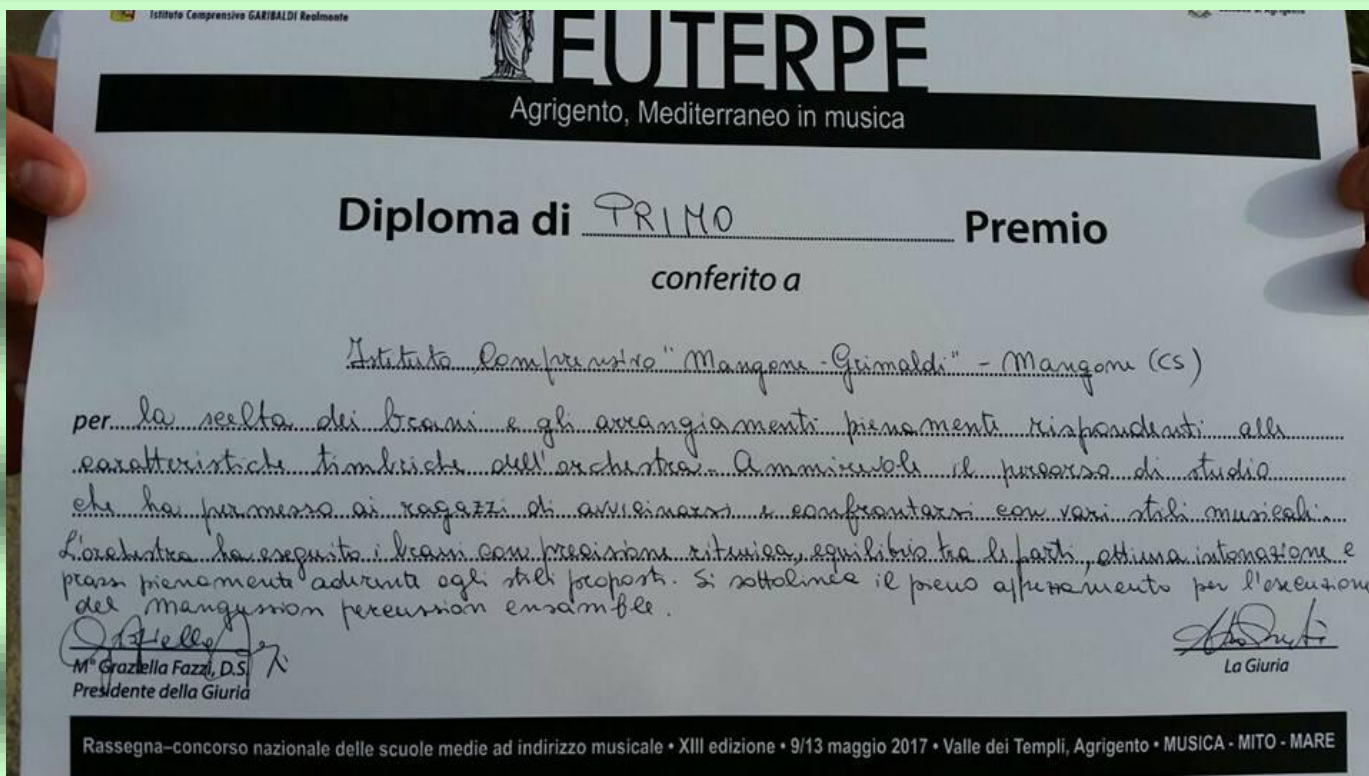 Istituto Comprensivo GARIBALDI Realmonte
EUTERPE
Agrigento, Mediterraneo in musica
Diploma di PRIMO Premio
conferito a
Istituto Comprensivo "Mangone-Grimaldi" - Mangone (CS)
per la scelta dei brani e gli arrangiamenti pienamente rispondenti alle
caratteristiche timbriche dell'orchestra. Ammirevole il percorso di studio
che ha permesso ai ragazzi di avvicinarsi e confrontarsi con vari stili musicali.
L'orchestra ha eseguito i brani con precisione ritmica, equilibrio tra le parti, ottima intonazione e
prassi pienamente aderente agli stili proposti. Si sottolinea il pieno apprezzamento per l'esecuzione
del mangussion percussion ensamble.
M° Graziella Fazzi, D.S.
Presidente della Giuria
La Giuria
Rassegna–concorso nazionale delle scuole medie ad indirizzo musicale • XIII edizione • 9/13 maggio 2017 • Valle dei Templi, Agrigento • MUSICA - MITO - MARE